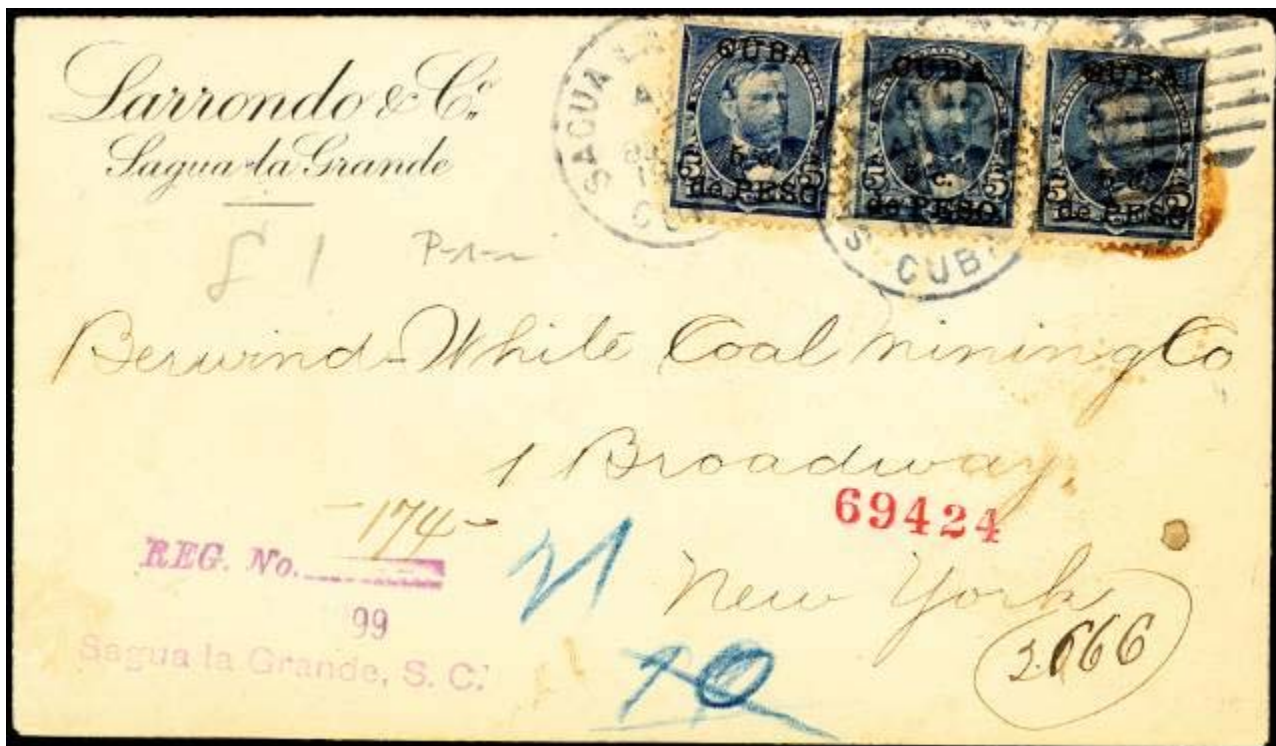 Larrondo & Cº
Sagua la Grande
SAGUA
CUBA
5 c.
de PESO
5 5
CUBA
5 c.
de PESO
5 5
CUBA
5 c.
de PESO
5 5
CUB
£ 1
Berwind-White Coal Mining Co
1 Broadway,
69424
New York
REG. No. -174-
99
Sagua la Grande, S. C.
21
10
2666